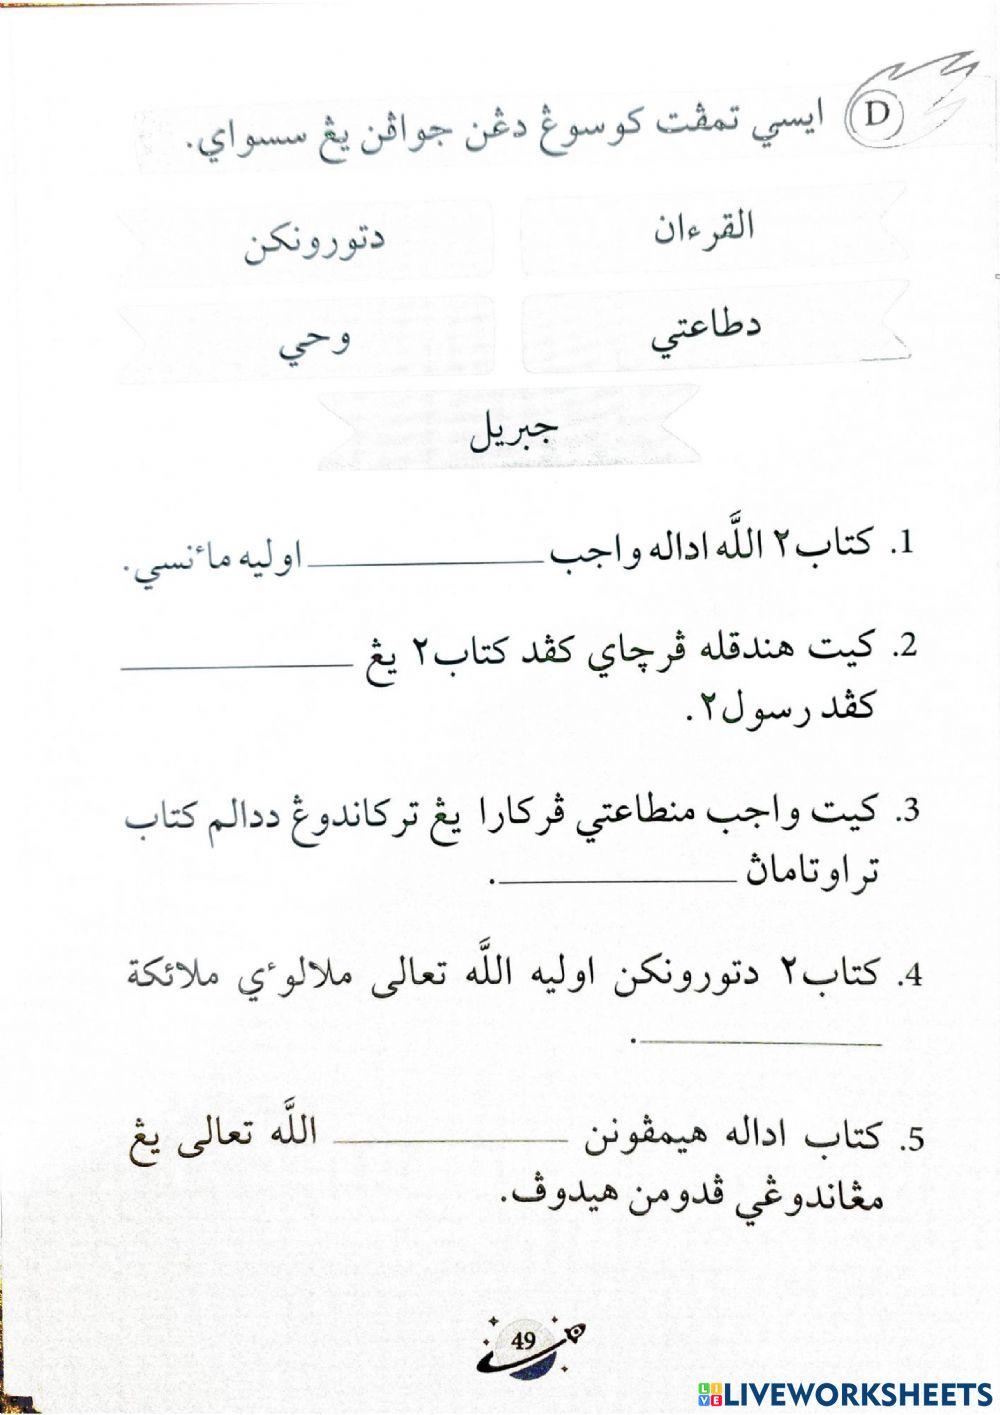 D ايسي تمڤت كوسوڠ دڠن جواڤن يڠ سسواي.
القرءان
دتورونكن
دطاعتي
وحي
جبريل
1. كتاب٢ اللَّه اداله واجب ____________ اوليه ماءنسي.
2. كيت هندقله ڤرچاي كڤد كتاب٢ يڠ ____________
كڤد رسول٢.
3. كيت واجب منطاعتي ڤركارا يڠ تركاندوڠ ددالم كتاب
تراوتاماڽ ____________.
4. كتاب٢ دتورونكن اوليه اللَّه تعالى ملالوءي ملائكة
____________.
5. كتاب اداله هيمڤونن ____________ اللَّه تعالى يڠ
مڠاندوڠي ڤدومن هيدوڤ.
49
LIVEWORKSHEETS